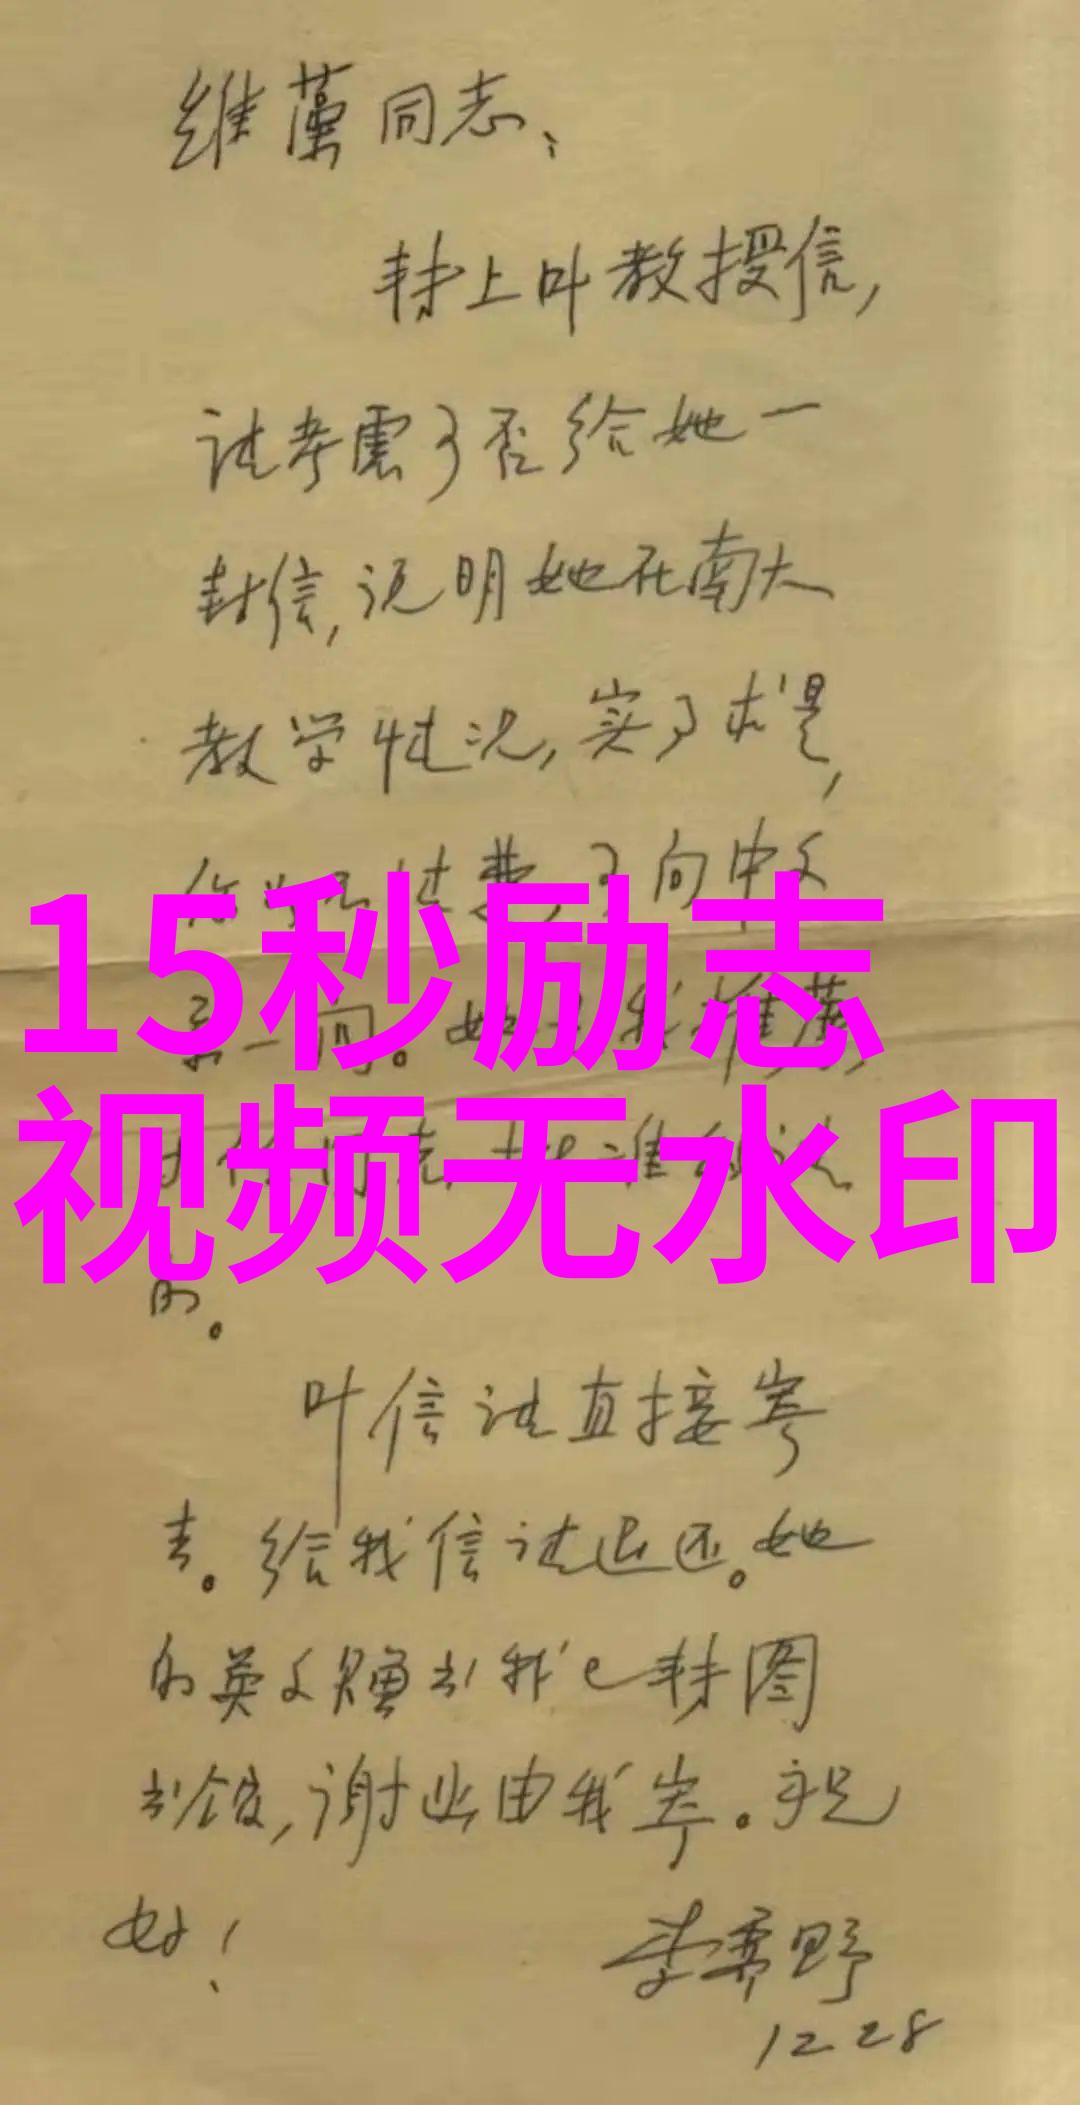 维藻同志：
转上叶教授信，
请考虑可否给她一
封信，说明她在南大
教学情况，实事求是，
向中文
15秒励志
系一问。她是我推荐
视频无水印
的。
叶信请直接寄
去。给我信请退还。她
的英文赠书我已转图
书馆，谢业由我寄。祝
好！
李霁野
12 28